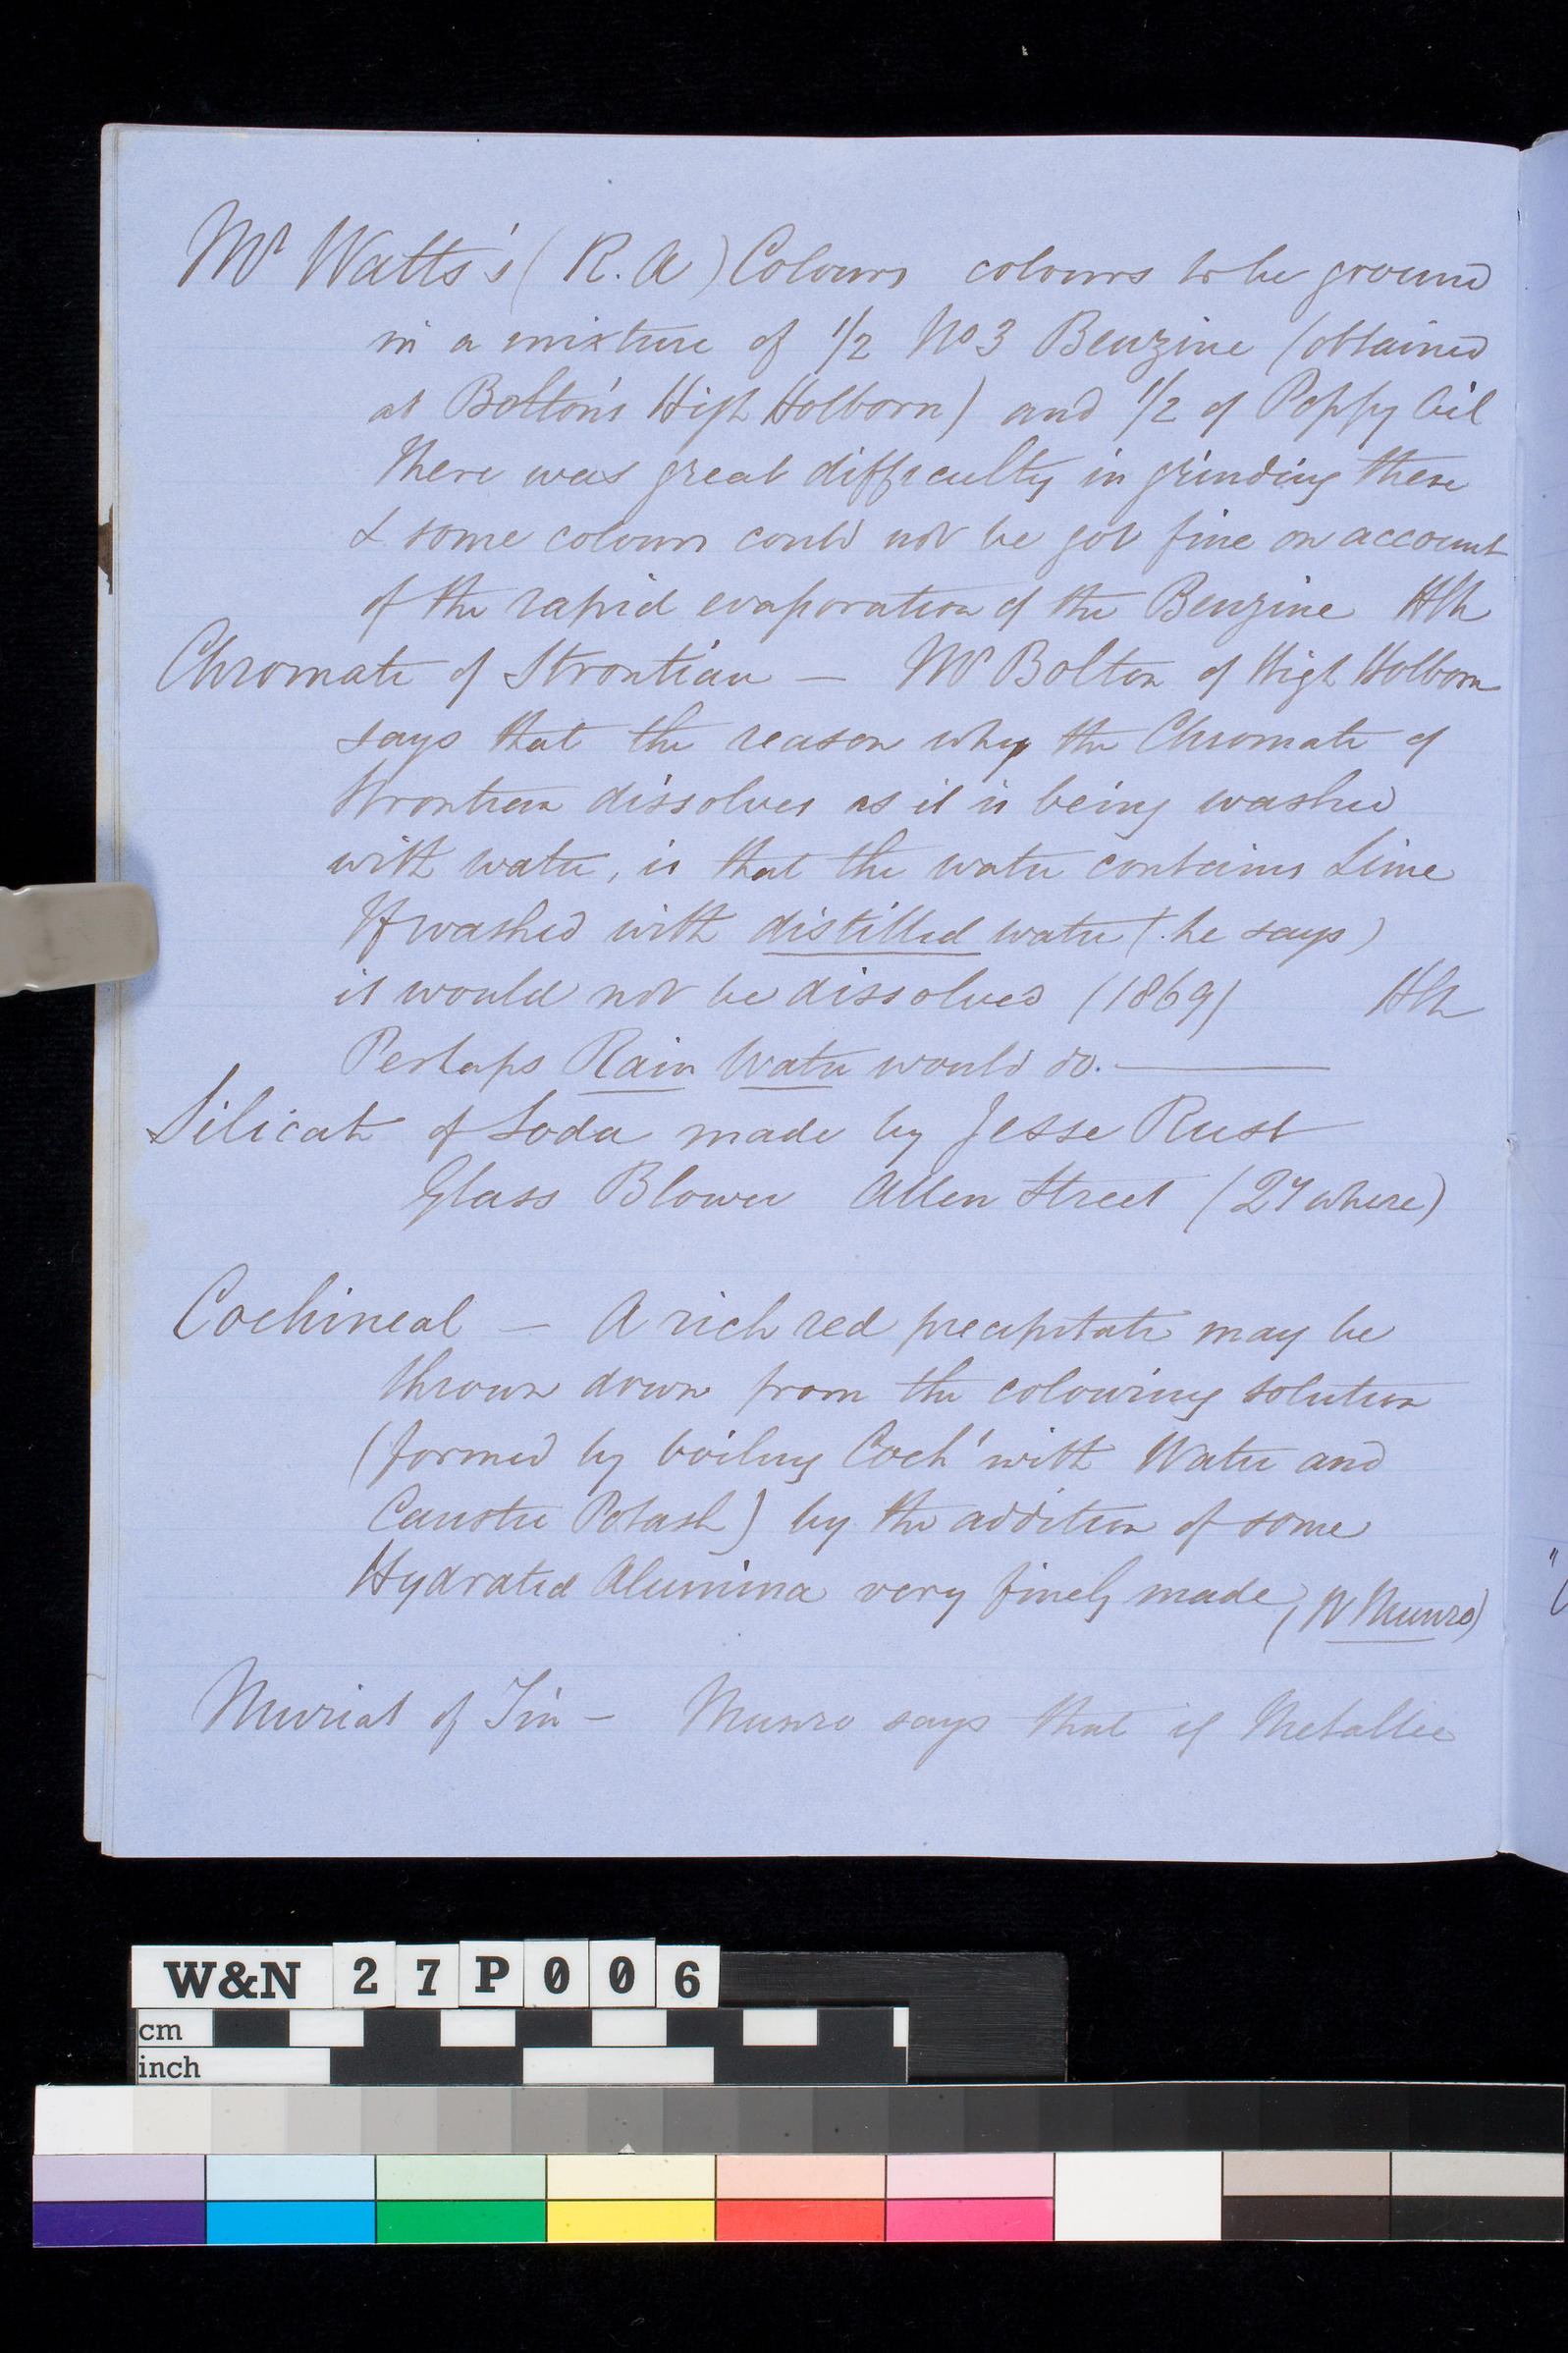 Mr Watts's (R.A) Colours colours to be ground
in a mixture of 1/2 No 3 Benzine (obtained
at Bolton's High Holborn) and 1/2 of Poppy Oil
There was great difficulty in grinding these
& some colours could not be got fine on account
of the rapid evaporation of the Benzine
Chromate of Strontian — Mr Bolton of High Holborn
says that the reason why the Chromate of
Strontian dissolves as it is being washed
with water, is that the water contains Lime
If washed with distilled water (he says)
it would not be dissolved (1869)
Perhaps Rain Water would do. —
Silicate of Soda made by Jesse Rust
Glass Blower Allen Street (where)
Cochineal — A rich red precipitate may be
thrown down from the colouring solution
(formed by boiling Coch' with Water and
Caustic Potash) by the addition of some
Hydrated Alumina very finely made, (W Munro)
Muriat of Tin — Munro says that if Metallic
W&N 27P006
cm
inch